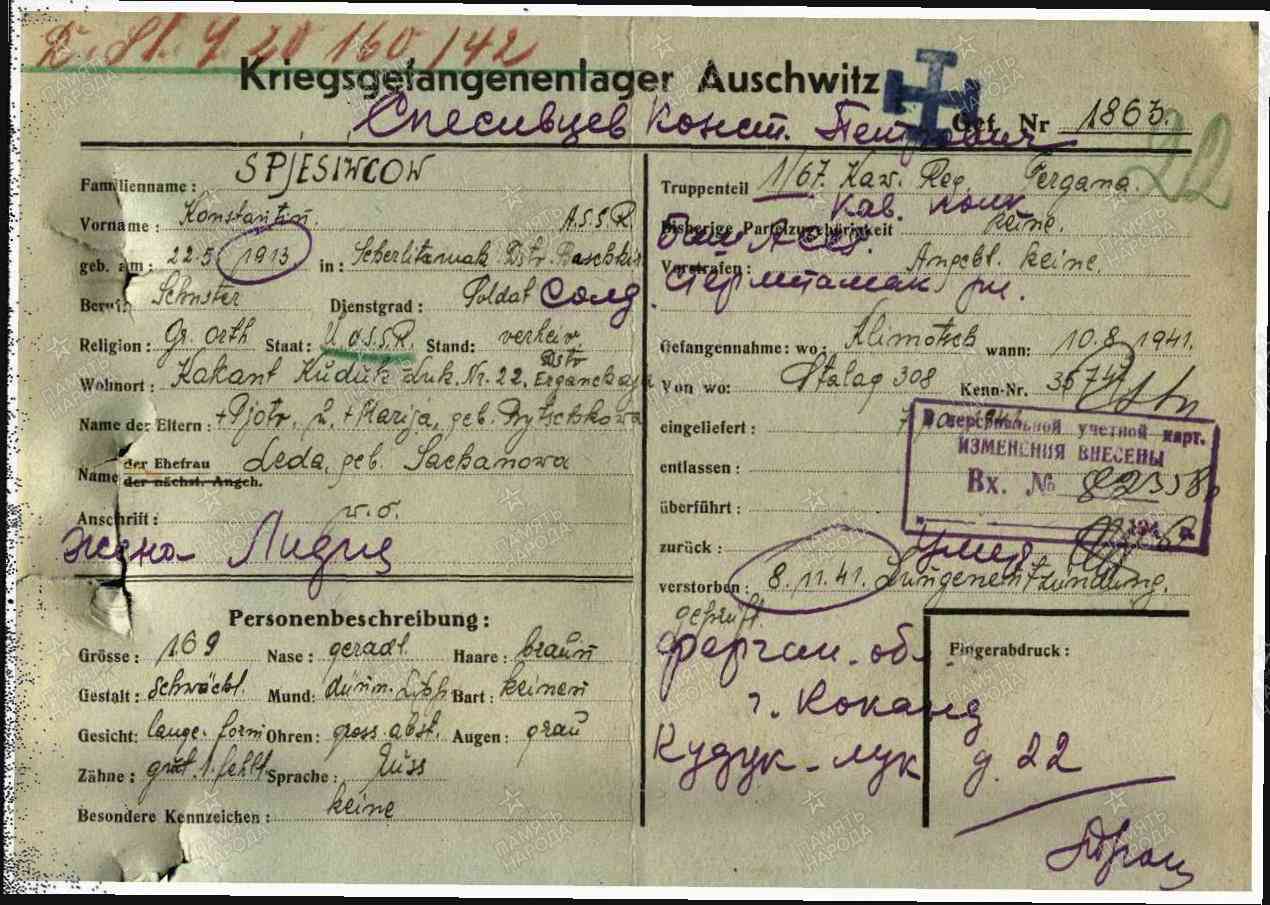 D. St. 9 20 160/42
Kriegsgefangenenlager Auschwitz
Спесивцев Конст. Петрович
Gef. Nr 1863.
22
Familienname: SPJESIWCOW
Vorname: Konstantin. A.S.S.R.
geb. am: 22.5 1913 in: Seberlitamak Dstr. Baschkir
Beruf: Schuster Dienstgrad: Soldat Солд.
Religion: Gr. orth Staat: U.d.S.S.R. Stand: verheir.
Dstr
Wohnort: Kakant Kuduk Luk. Nr. 22,
Name der Eltern: + Pjotr, u. + Marija, geb.
Name der Ehefrau Leda, geb. Sachanowa
der nächst. Angeh.
Anschrift: w. o.
жена Лидия
Personenbeschreibung:
Grösse: 169 Nase: geradl. Haare: braun
Gestalt: schwächl. Mund: dünn. Lipp Bart: keinen
Gesicht: lange. form Ohren: gross abst. Augen: grau
Zähne: gut. 1. fehlt Sprache: Russ
Besondere Kennzeichen: keine
Truppenteil 1/67. Kaw. Reg. Fergana.
кав. полк
Bisherige Parteizugehörigkeit keine.
Баш АССР.
Vorstrafen: Angebl. keine.
Стерлитамак рн.
Gefangennahme: wo: Klimotsch wann: 10.8.1941.
Von wo: Stalag 308 Kenn-Nr.
eingeliefert:
entlassen:
überführt:
zurück: Умер
verstorben: 8.11.41. Lungenentzündung.
geprüft.
В персональной учетной карт.
ИЗМЕНЕНИЯ ВНЕСЕНЫ
Вх. №
194 г.
Ферган. обл.
г. Коканд
Кудук-лук д. 22
Fingerabdruck:
ПАМЯТЬ НАРОДА